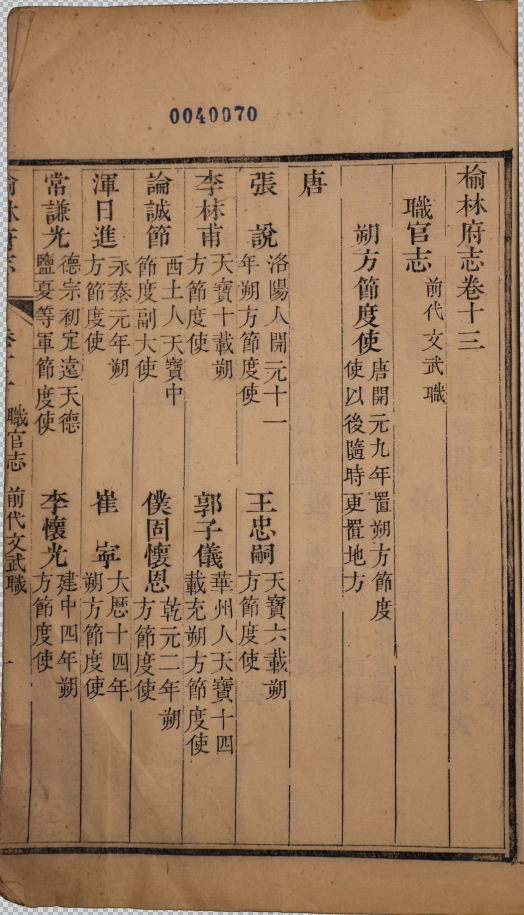 0040070
榆林府志卷十三
職官志 前代文武職
朔方節度使 唐開元九年置朔方節度
使以後隨時更置地方
唐
張說 洛陽人開元十一
年朔方節度使
王忠嗣 天寶六載朔
方節度使
李林甫 天寶十載朔
方節度使
郭子儀 華州人天寶十四
載充朔方節度使
論誠節 西土人天寶中
節度副大使
僕固懷恩 乾元二年朔
方節度使
渾日進 永泰元年朔
方節度使
崔寧 大曆十四年
朔方節度使
常謙光 德宗初定遠天德
鹽夏等軍節度使
李懷光 建中四年朔
方節度使
榆林府志
職官志 前代文武職
一